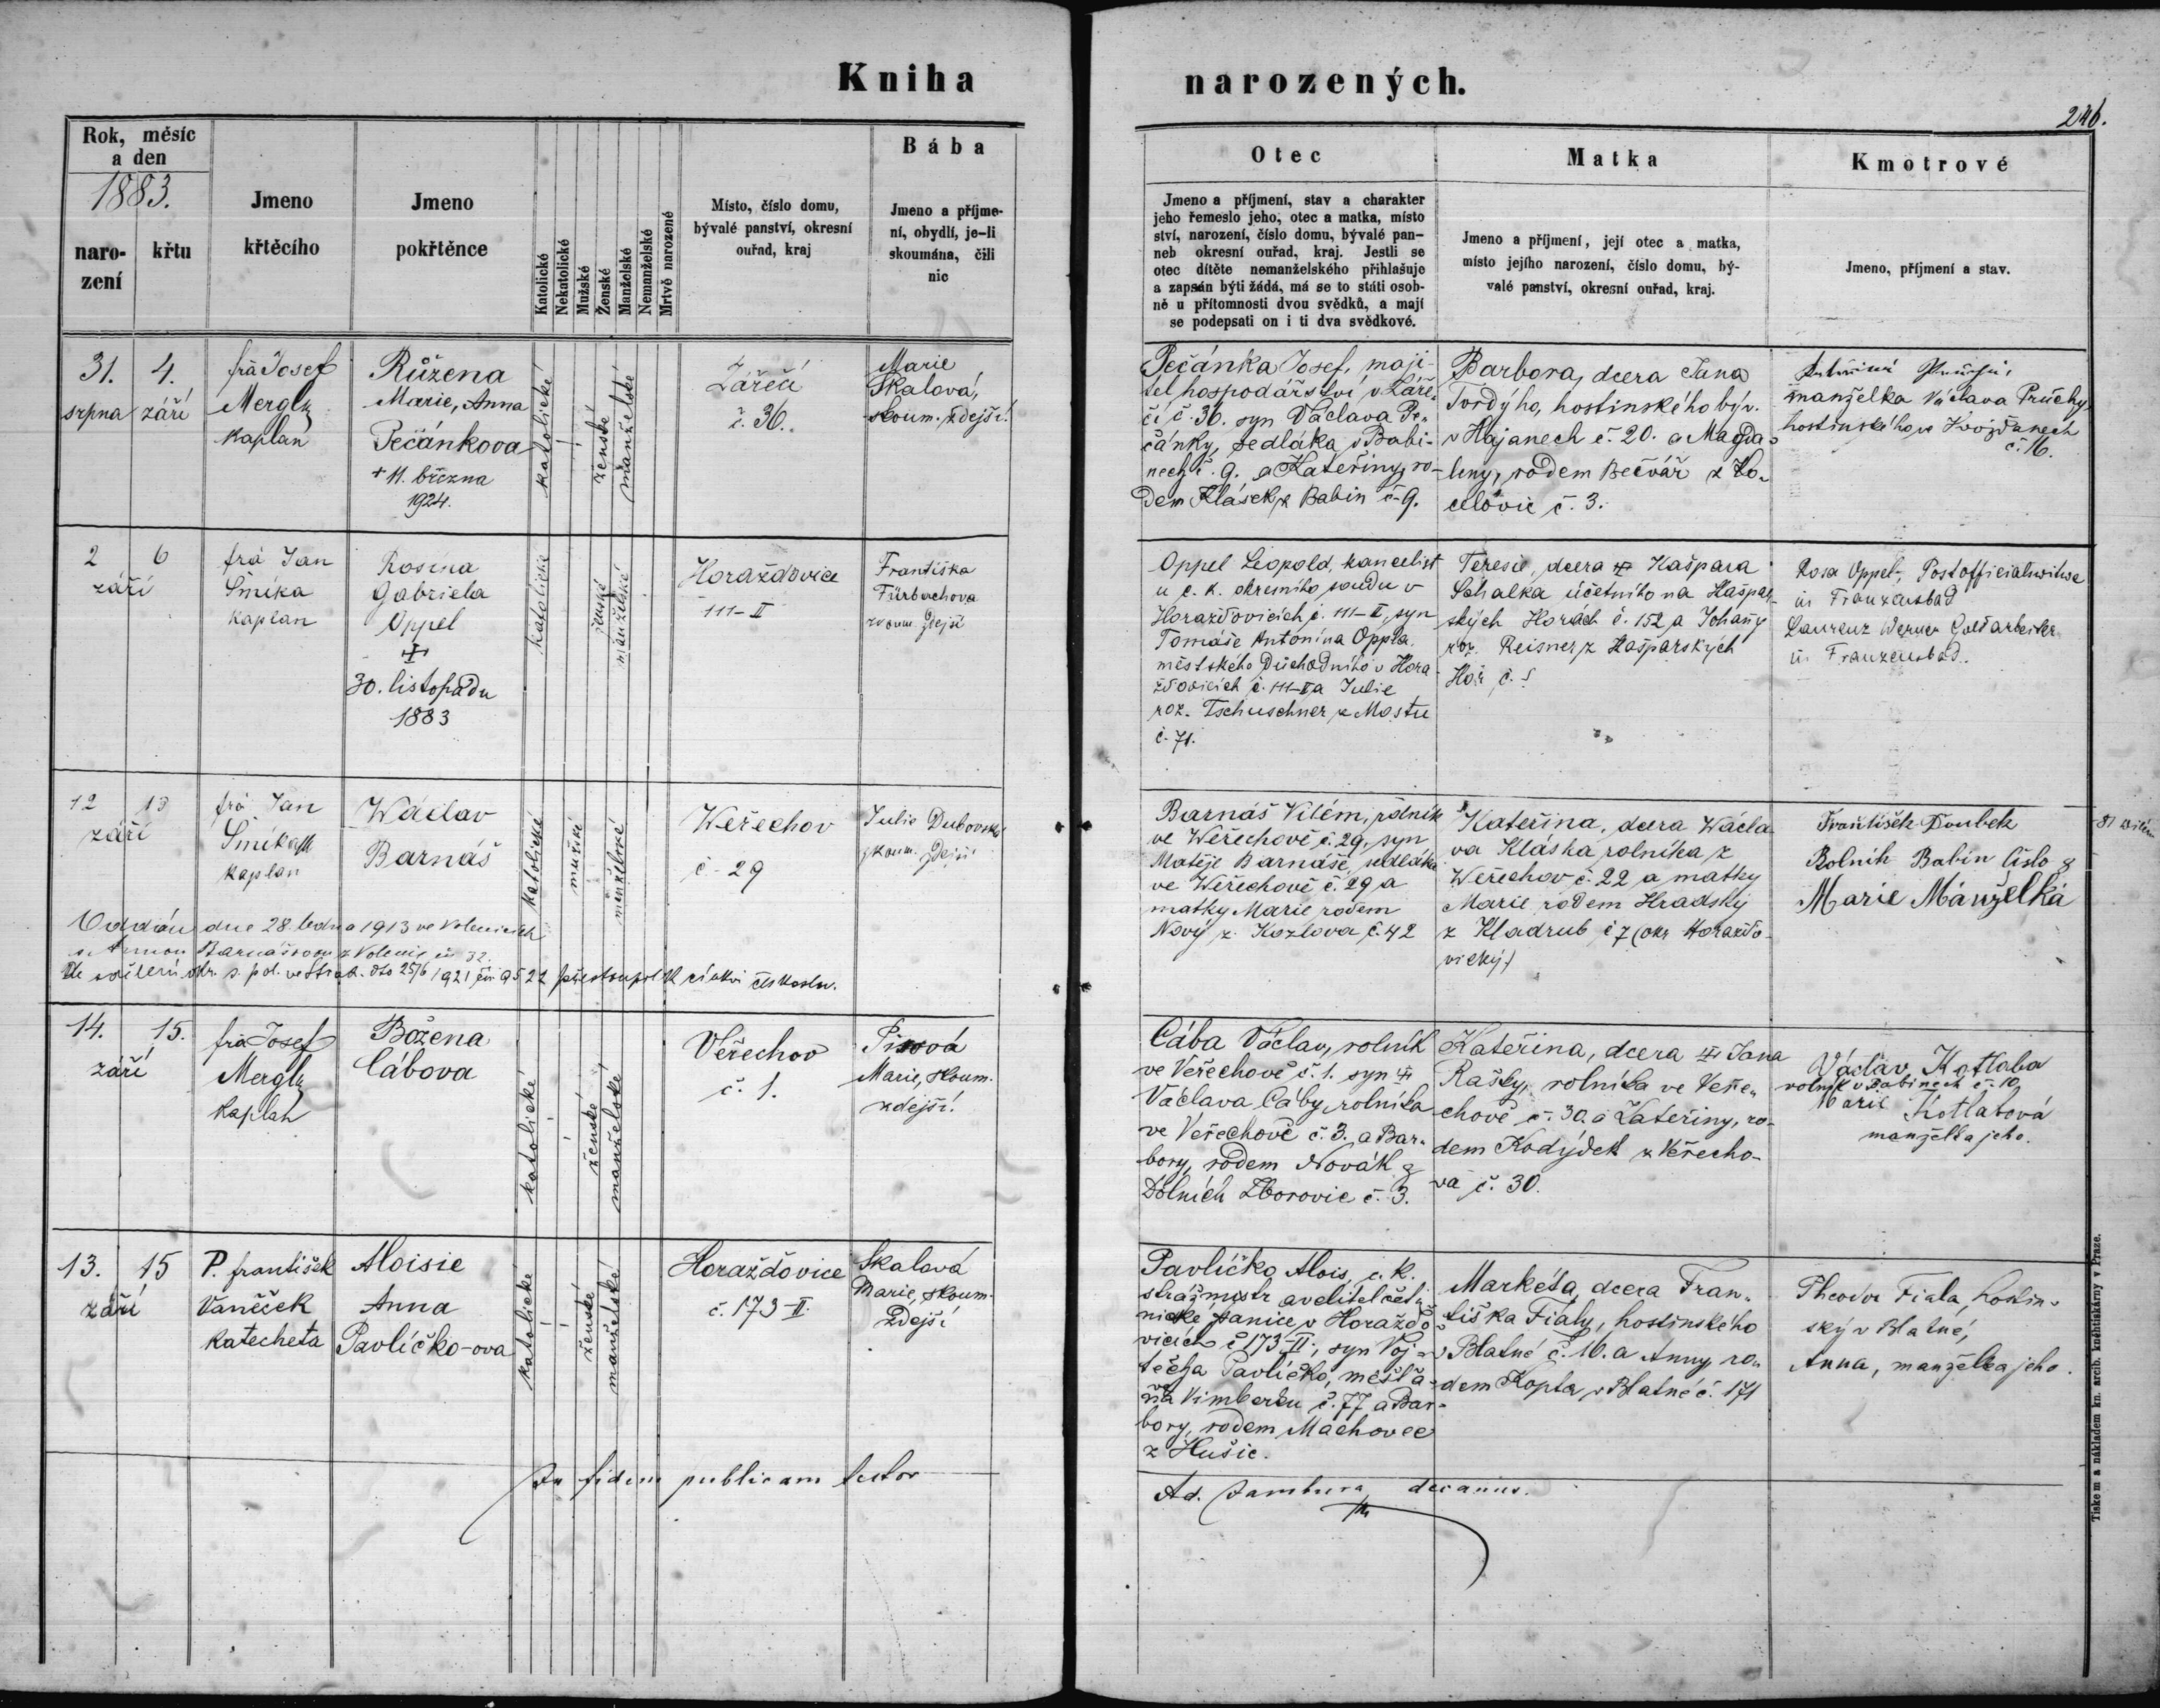 Kniha
narozených.
246.
Rok, měsíc
a den
1883.
naro-
zení
křtu
Jmeno
křtěcího
Jmeno
pokřtěnce
Katolické
Nekatolické
Mužské
Ženské
Manželské
Nemanželské
Mrtvě narozené
Místo, číslo domu,
bývalé panství, okresní
ouřad, kraj
Bába
Jmeno a příjme-
ní, obydlí, je-li
skoumána, čili
nic
Otec
Jmeno a příjmení, stav a charakter
jeho řemeslo jeho, otec a matka, místo
ství, narození, číslo domu, bývalé pan-
neb okresní ouřad, kraj. Jestli se
otec dítěte nemanželského přihlašuje
a zapsán býti žádá, má se to státi osob-
ně u přítomnosti dvou svědků, a mají
se podepsati on i ti dva svědkové.
Matka
Jmeno a příjmení, její otec a matka,
místo jejího narození, číslo domu, bý-
valé panství, okresní ouřad, kraj.
Kmotrové
Jmeno, příjmení a stav.
31. 4.
srpna září
frá Josef
Mergl
kaplan
Růžena
Marie, Anna
Pečánkova
+ 11. března
1924.
katolické
ženské
manželské
Zářečí
č. 36.
Marie
Skalová,
skoum. zdejší.
Pečánka Josef, maji-
tel hospodářství v Záře-
čí č. 36. syn Václava Pe-
čánky, sedláka v Babi-
nech č. 9. a Kateřiny, ro-
dem Klásek z Babin č. 9.
Barbora, dcera Jana
Tvrdýho, hostinského býv.
v Hajanech č. 20. a Magda-
leny, rodem Bečvář z
celovic č. 3.
manželka Václava Průchy
hostinského v Hvožďanech
č. 16.
2 6
září
frá Jan
Šmíka
kaplan
Rosina
Gabriela
Oppel
30. listopadu
1883
katolické
ženské
manželské
Horažďovice
111-II
Františka
Fürbachova
zkoum. zdejší
Oppel Leopold, kancelist
u c. k. okresního soudu v
Horažďovicích č. 111-II, syn
Tomáše Antonína Oppla
městského důchodního v Hora-
žďovicích č. 111-II a Julie
roz. Tschuschner z Mostu
č. 71.
Teresie, dcera Kašpara
Schalka účetního na Kašpar-
ských Horách č. 152 a Johany
roz. Reisner z Kašparských
Hor č. ?
Rosa Oppel, Postofficialswitwe
in Franzensbad
Laurenz Werner Goldarbeiter
in Franzensbad.
12 13
září
frá Jan
Šmíka
kaplan
Wáclav
Barnáš
katolické
mužské
manželské
Weřechov
č. 29
Julie Dubovská
zkoum. zdejší
Barnáš Vilém, rolník
ve Weřechově č. 29, syn
Matěje Barnáše, sedláka
ve Weřechově č. 29 a
matky Marie rodem
Nový z Kozlova č. 42
Kateřina, dcera Wácla-
va Kláska rolníka z
Weřechov č. 22 a matky
Marie rodem Hradský
z Kladrub č 7 (okr. Horažďo-
vický.)
František Doubek
Rolník Babin Číslo 8
Marie Mánželká
Oddán dne 28. ledna 1913 ve Volenicích
s Annou Barnášovou z Volenic č. 32.
Dle sdělení okr. s. pol. ve Strak. dto 25/6 1921 čís. 9522 přestoupil k církvi českoslov.
14. 15.
září
frá Josef
Mergl
kaplan
Božena
Cábova
katolické
ženské
manželské
Veřechov
č. 1.
Marie, skoum.
zdejší.
Cába Václav, rolník
ve Veřechově č. 1. syn
Václava Cáby, rolníka
ve Veřechově č. 3. a Bar-
bory, rodem Novák z
Dolních Zborovic č. 3.
Kateřina, dcera Jana
Rašky, rolníka ve Veře-
chově č. 30. a Kateřiny, ro-
dem Kodýdek z Veřecho-
va č. 30.
Václav Kotlaba
rolník v Babinech č. 10,
Marie Kotlabová
manželka jeho.
13. 15
září
P. František
Vaněček
katecheta
Aloisie
Anna
Pavlíčko-ova
katolické
ženské
manželské
Horažďovice
č. 173-II.
Skalová
Marie, skoum.
zdejší
Pavlíčko Alois, c. k.
strážmistr a velitel čet-
nické stanice v Horažďo-
vicích č 173-II, syn Voj-
těcha Pavlíčko, měšťa-
na Vimberku č. 77 a Bar-
bory, rodem Machovec
z Husic.
Markéta, dcera Fran-
tiška Fialy, hostinského
v Blatné č. 10. a Anny ro-
dem Kopta z Blatné č. 171
Theodor Fiala, hostin-
ský v Blatné,
Anna, manželka jeho.
In fidem publicam testor
Ad. Jambura decanus.
Tiskem a nákladem kn. arcib. knihtiskárny v Praze.